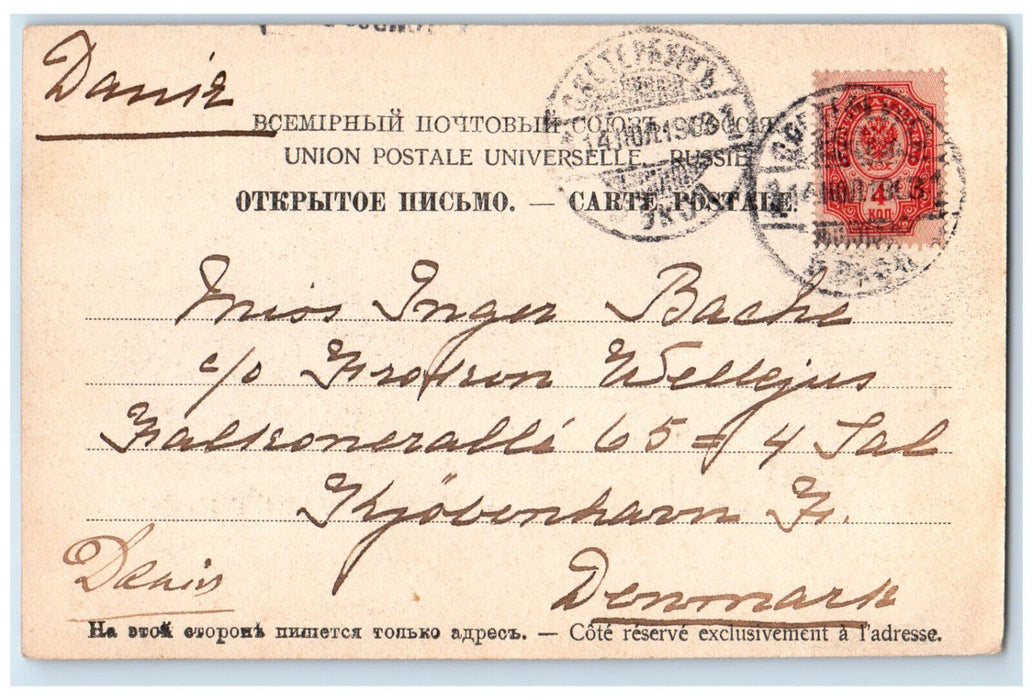 Danig
ВСЕМІРНЫЙ ПОЧТОВЫЙ СОЮЗЪ. РОССІЯ.
UNION POSTALE UNIVERSELLE. RUSSIE
ОТКРЫТОЕ ПИСЬМО. — CARTE POSTALE.
4
КОП
Miss Inger Bache
c/o Frøken Wellejus
Falkoneralle 65 = 4 Sal
Kjöbenhavn F.
Denmark
На этой сторонѣ пишется только адресъ. — Côté réservé exclusivement à l'adresse.